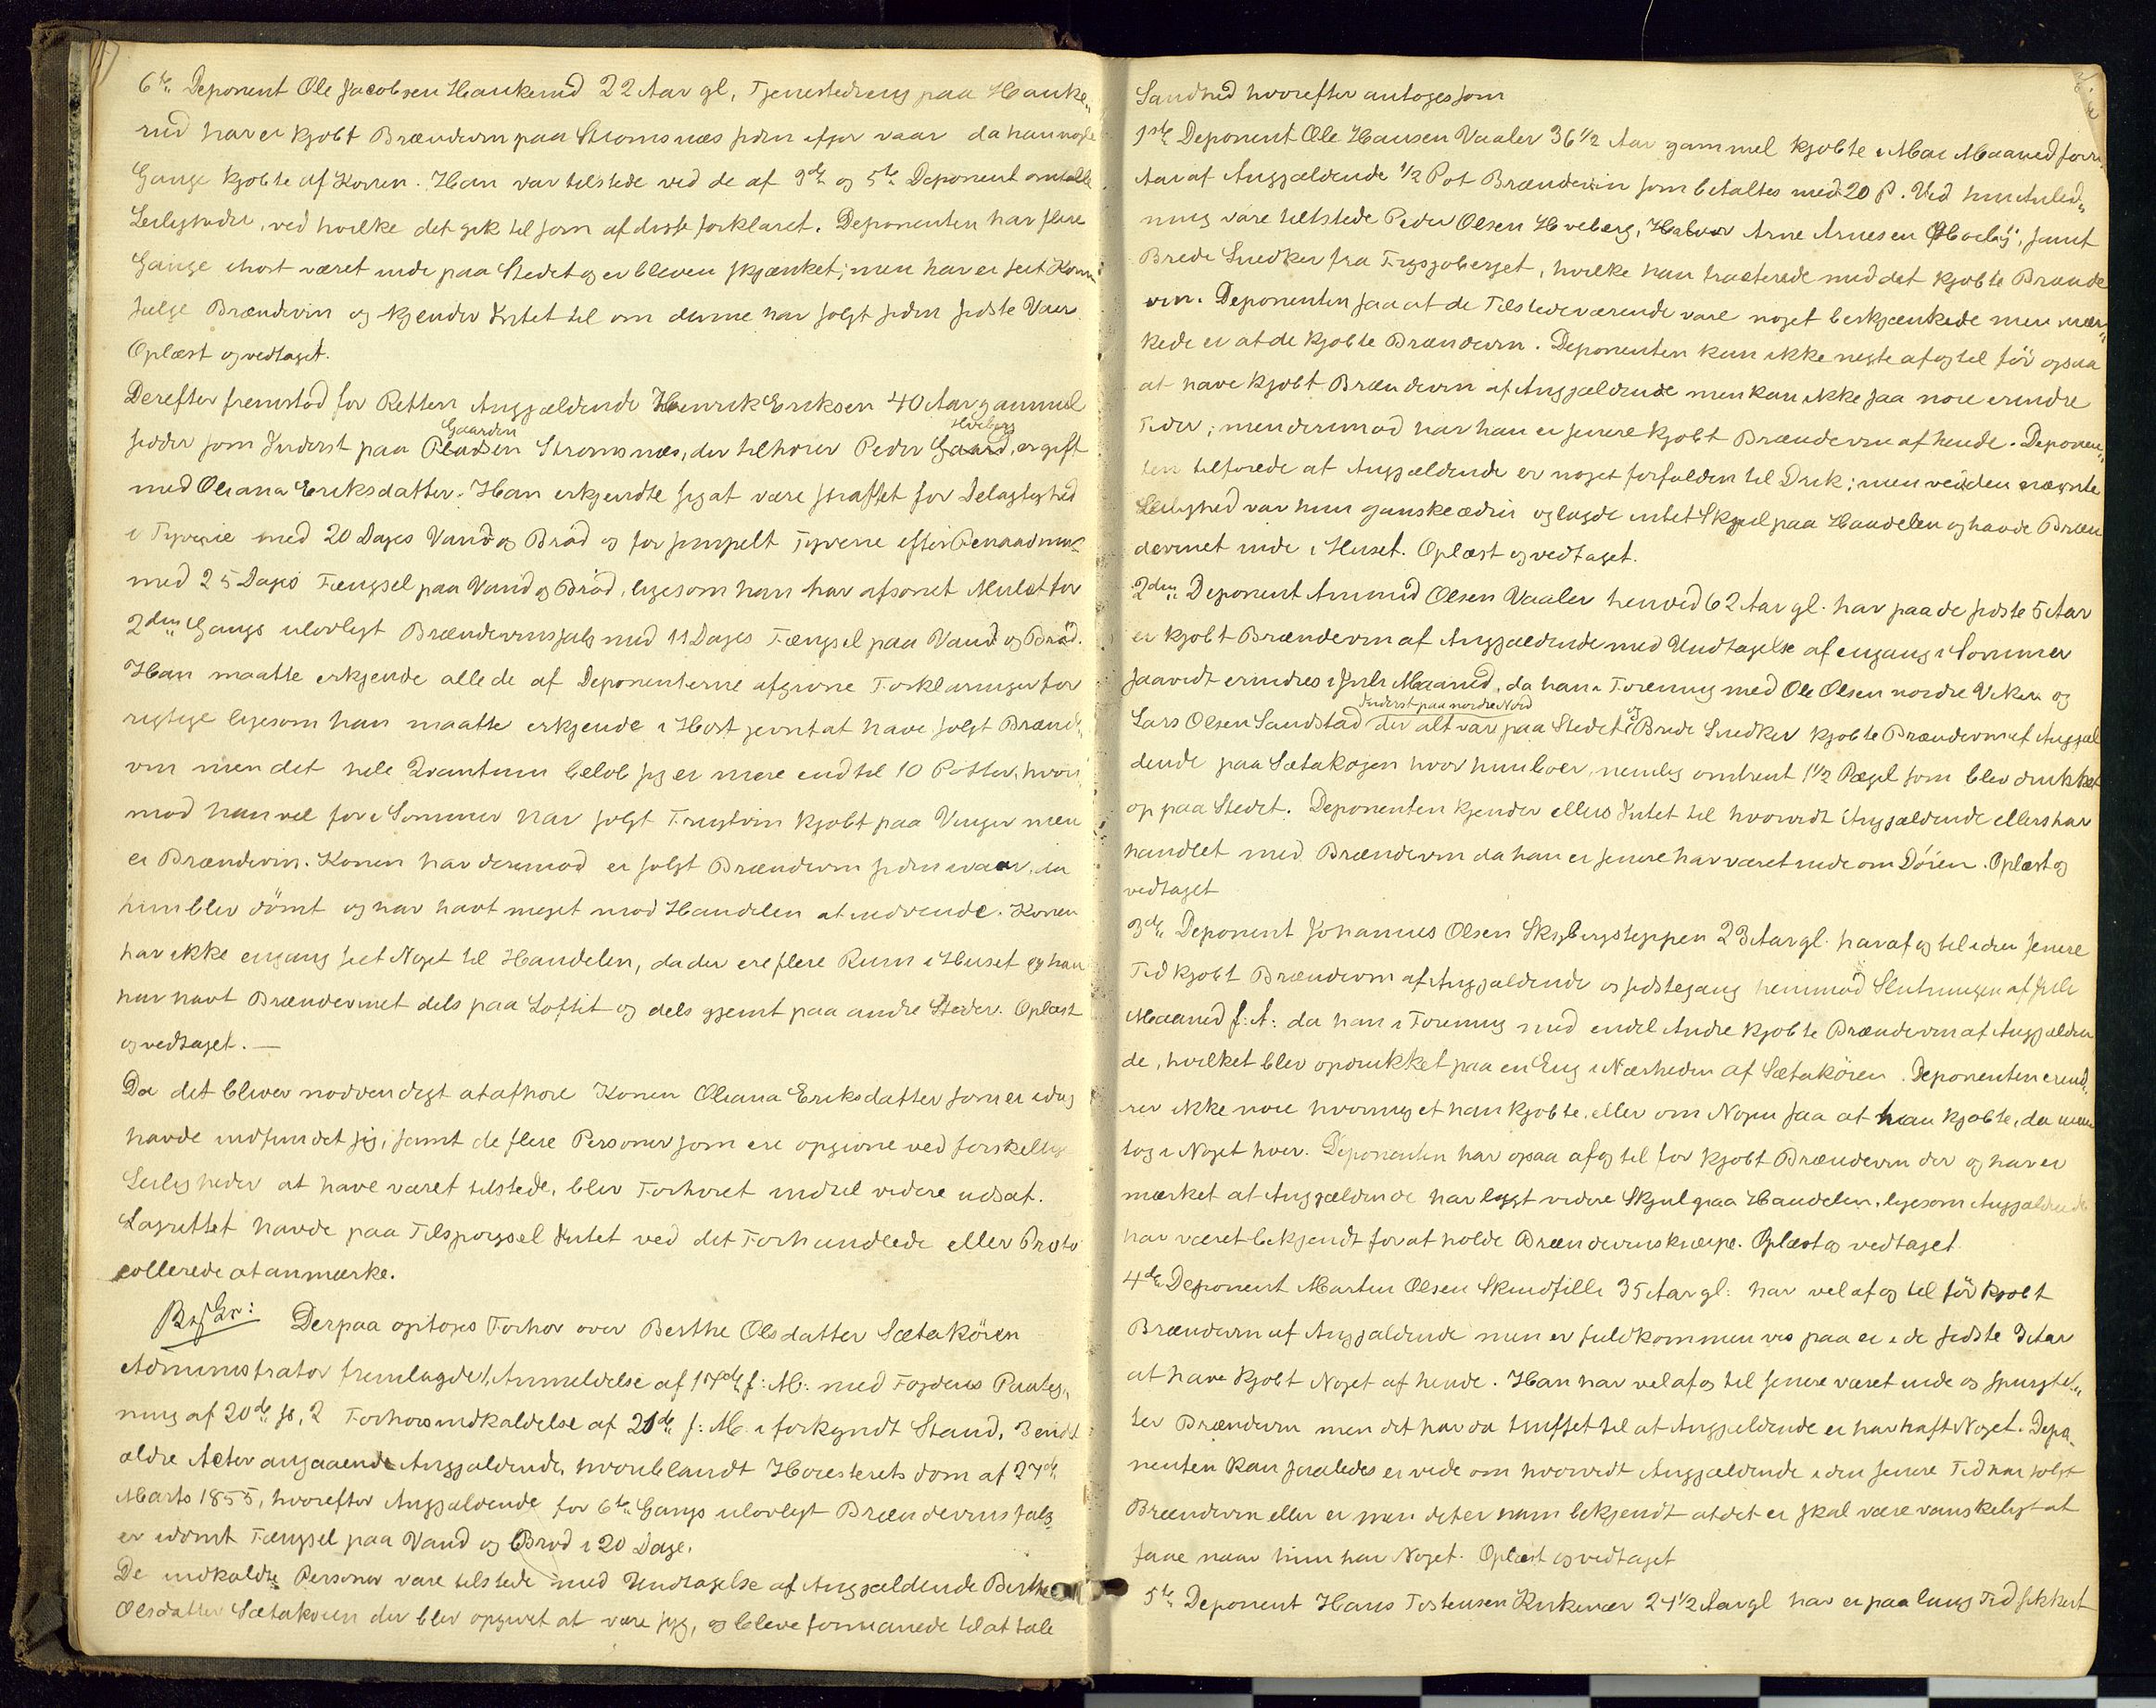 6te Deponent Ole Jacobsen Haukerud 22 Aar gl, Tjenestedreng paa Hauke„
rud har ei kjøbt Brændevin paa Strømsnæs siden ifjor vaar da han nogle
Gange kjøbte af Konen. Han var tilstede ved de af 3de og 5te Deponent omtalte
Leiligheder, ved hvilke det gik til som af disse forklaret. Deponenten har flere
Gange ihøst været inde paa Stedet og er bleven skjænket; men har ei seet Konen
sælge Brændevin og kjender Intet til om denne har solgt siden sidste Vaar.
Oplæst og vedtaget.
Derefter fremstod for Retten Angjældende Henrik Eriksen 40 Aar gammel
sidder som Inderst paa Pladsen Gaarden Strømsnæs, der tilhører Peder Gaard Hveberg, er gift
med Oliana Eriksdatter. Han erkjendte sig at være straffet for Delagtighed
i Tyverie med 20 Dages Vand og Brød og for simpelt Tyverie efter Benaadning
med 25 Dages Fængsel paa Vand og Brød, ligesom han har afsonet Mulct for
2den Gangs ulovligt Brændevinssalg med 11 Dages Fængsel paa Vand og Brød.
Han maatte erkjende alle de af Deponenterne afgivne Forklaringer for
rigtige ligesom han maatte erkjende i Høst jevnt at have solgt Brænde„
vin men det hele Qvantum beløb sig ei mere end til 10 Potter, hvori„
mod han vel før i Sommer har solgt Frugtvin kjøbt paa Vinger men
ei Brændevin. Konen har derimod ei solgt Brændevin siden ivaar, da
hun blev dømt og har havt meget mod Handelen at indvende. Konen
har ikke engang seet Noget til Handelen, da der ere flere Rum i Huset og han
har havt Brændevinet dels paa Loftet og dels gjemt paa andre Steder. Oplæst
og vedtaget. —
Da det bliver nødvendigt at afhøre Konen Oliana Eriksdatter som ei idag
havde indfundet sig, samt de flere Personer som ere opgivne ved forskellige
Leiligheder at have været tilstede, blev Forhøret indtil videre udsat.
Lagrettet havde paa Tilspørgsel Intet ved det Forhandlede eller Proto
collerede at anmærke.
Derpaa optoges Forhør over Berthe Olsdatter Sætakøien
Administrator fremlagde 1, Anmeldelse af 17de f: M: med Fogdens Paateg„
ning af 20de s., 2 Forhørsindkaldelse af 21de f: M. i forkyndt Stand, 3 endel
ældre Acter angaaende Angjældende, hvoriblandt Høiesterets dom af 27de
Marts 1855, hvorefter Angjældende for 6te Gangs ulovligt Brændevinssalg
er idømt Fængsel paa Vand og Brød i 20 Dage.
De indkaldte Personer vare tilstede med Undtagelse af Angjældende Berthe
Olsdatter Sætakøien der blev opgivet at være syg, og bleve formanede til at tale
Sandhed hvorefter antoges som
1ste Deponent Ole Hansen Vaaler 36 1/2 Aar gammel kjøbte i Mai Maaned forri
Aar af Angjældende 1/2 Pot Brændevin som betaltes med 20 ß. Ved hin Anled„
ning vare tilstede Peder Olsen Hveberg, Halvor Arne Arnesen samt
Brede Snedker fra Frysjøberget, hvilke han tracterede med det kjøbte Brænde
vin. Deponenten saa at de Tilstedeværende vare noget beskjænkede men mær„
kede ei at de kjøbte Brændevin. Deponenten kan ikke negte af og til før ogsaa
at have kjøbt Brændevin af Angjældende men kan ikke saa nøie erindre
Tider; men derimod har han ei senere kjøbt Brændevin af hende. Deponen„
ten tilføiede at Angjældende er noget forfalden til Druk; men ved den nævnte
Leilighed var hun ganske ædru og lagde intet Skjul paa Handelen og havde Bræn
devinet inde i Huset. Oplæst og vedtaget.
2den Deponent Amund Olsen Vaaler henved 62 Aar gl. har paa de sidste 5 Aar
ei kjøbt Brændevin af Angjældende med Undtagelse af engang i Sommer
saavidt erindres i Juli Maaned, da han i Forening med Ole Olsen nordre Viker og
Lars Olsen Sandstad Inderst paa nordre Nord der alt vare paa Stedet og Brede Snedker kjøbte Brændevin af Angjæl
dende paa Sætakøien hvor hun boer, nemlig omtrent 1 1/2 Pægel som blev drukket
op paa Stedet. Deponenten kjender ellers Intet til hvorvidt Angjældende ellers har
handlet med Brændevin da han ei senere har været inde om Døren. Oplæst og
vedtaget
3die Deponent Johannes Olsen Skybergsteppen 23 Aar gl. har af og til i den senere
Tid kjøbt Brændevin af Angjældende og sidstegang henimod Slutningen af Juli
Maaned f: A: da han i Forening med endel Andre kjøbte Brændevin af Angjælden
de, hvilket blev opdrukket paa en Eng i Nærheden af Sætakøien. Deponenten erind„
rer ikke nøie hvormeget han kjøbte, eller om Nogen saa at han kjøbte, da man
tog i Noget hver. Deponenten har ogsaa af og til før kjøbt Brændevin der og har ei
mærket at Angjældende har lagt videre Skjul paa Handelen, ligesom Angjældende
har været bekjendt for at holde Brændevinskneipe. Oplæst og vedtaget.
4de Deponent Marten Olsen Skindfille 35 Aar gl: har vel af og til før kjøbt
Brændevin af Angjældende men er fuldkommen vis paa ei i de sidste 3 Aar
at have kjøbt Noget af hende. Han har vel af og til senere været inde og spurgt ef„
ter Brændevin men det har da truffet til at Angjældende ei har haft Noget. Depo„
nenten kan saaledes ei vide om hvorvidt Angjældende i den senere Tid har solgt
Brændevin eller ei men det er ham bekjendt at det ei skal være vanskeligt at
faae naar hun har Noget. Oplæst og vedtaget
5te Deponent Hans Torstensen Kirkenær 24 1/2 Aar gl har ei paa lang Tid sikkert